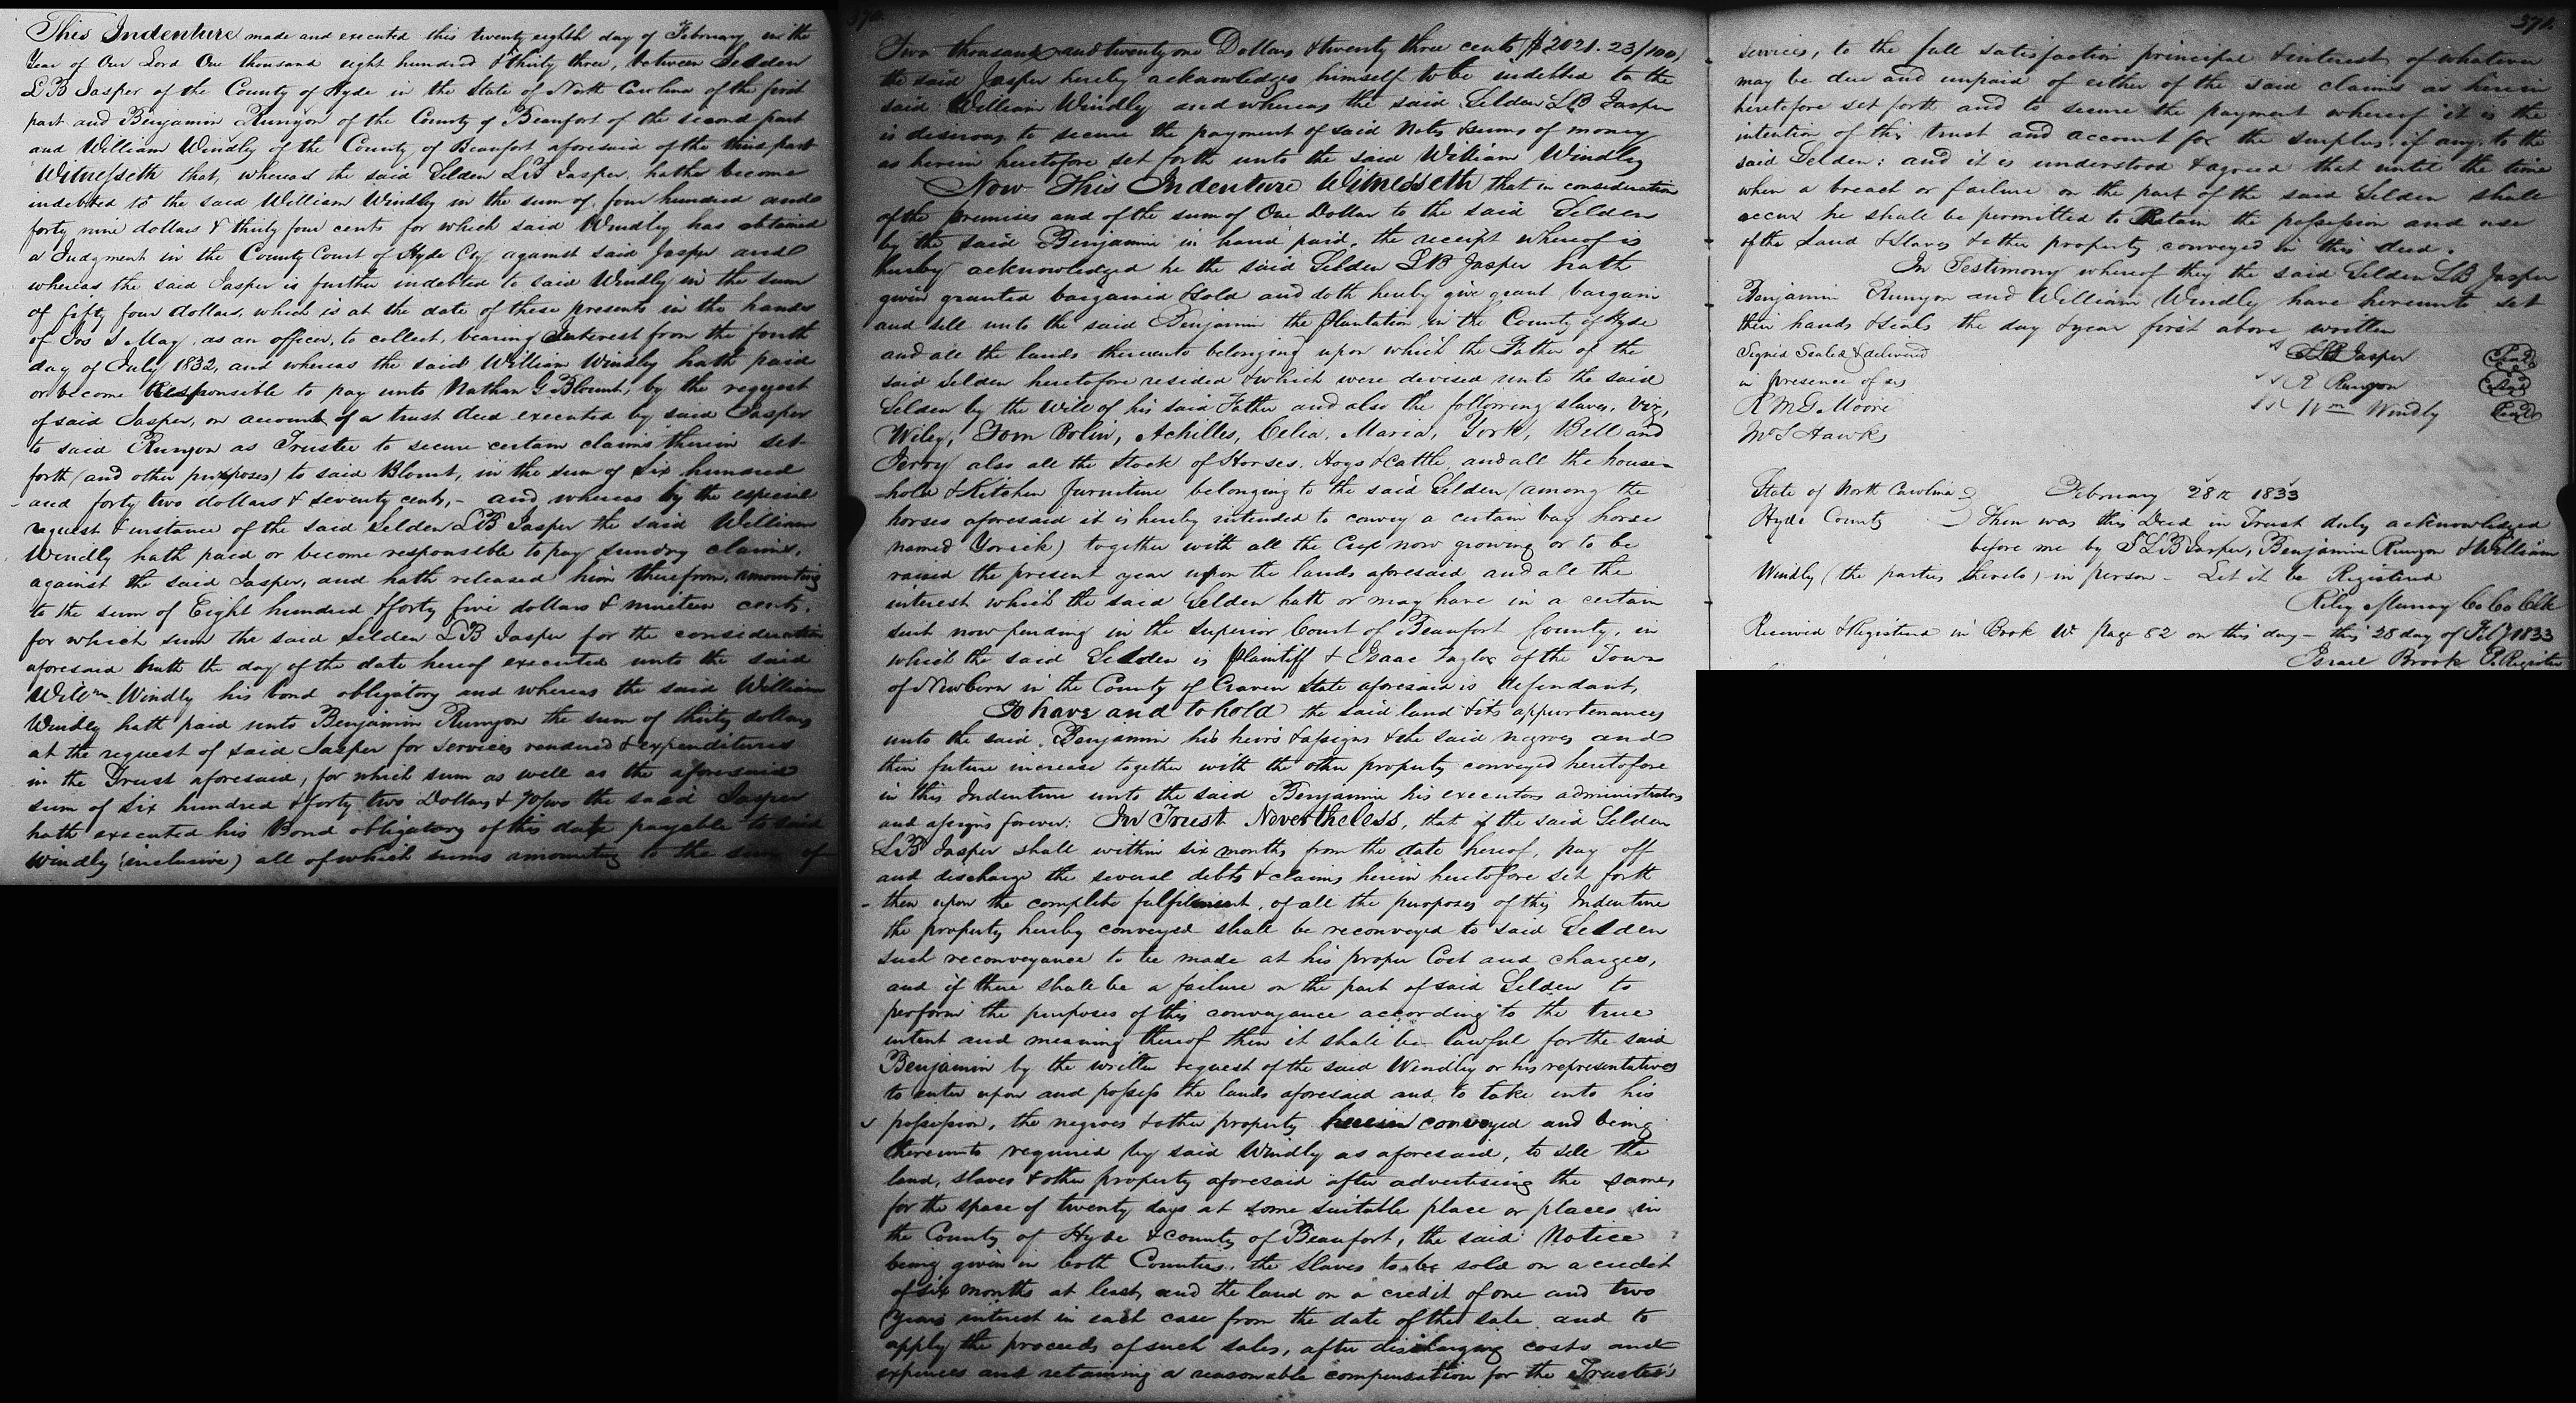 This Indenture made and executed this twenty eighth day of February in the
Year of Our Lord One thousand eight hundred & thirty three, between Selden
L B Jasper of the County of Hyde in the State of North Carolina of the first
part and Benjamin Runyon of the County of Beaufort of the second part
and William Windly of the County of Beaufort aforesaid of the third part
Witnesseth that, whereas the said Selden L B Jasper, hath become
indebted to the said William Windly in the sum of four hundred and
forty nine dollars & thirty four cents for which said Windly has obtained
a Judgment in the County Court of Hyde Cty against said Jasper and
whereas the said Jasper is further indebted to said Windly in the sum
of fifty four dollars, which is at the date of these presents in the hands
of Jos S May, as an officer, to collect, bearing interest from the fourth
day of July 1832, and whereas the said William Windly hath paid
or become Responsible to pay unto Nathan G Blount, by the request
of said Jasper, on account of a trust deed executed by said Jasper
to said Runyon as Trustee to secure certain claims therein set
forth (and other purposes) to said Blount, in the sum of Six hundred
and forty two dollars & seventy cents, - and whereas by the especial
request & instance of the said Selden L B Jasper the said William
Windly hath paid or become responsible to pay sundry claims,
against the said Jasper, and hath released him therefrom, amounting
to the sum of Eight hundred & forty five dollars & nineteen cents.
for which sum the said Selden L B Jasper for the consideration
aforesaid hath the day of the date hereof executed unto the said
Willm Windly his bond obligatory and whereas the said William
Windly hath paid unto Benjamin Runyon the sum of thirty dollars
at the request of said Jasper for services rendered & expenditures
in the Trust aforesaid, for which sum as well as the aforesaid
sum of six hundred & forty two Dollars & 70/100 the said Jasper
hath executed his Bond obligatory of this date payable to said
Windly (inclusive) all of which sums amounting to the sum of
370
Two thousand and twenty one Dollars & twenty three cents ($2021.23/100)
the said Jasper hereby acknowledges himself to be indebted to the
said William Windly and whereas the said Selden L B Jasper
is desirous to secure the payment of said Notes & sums of money
as herein heretofore set forth unto the said William Windley
Now This Indenture Witnesseth that in consideration
of the premises and of the sum of One Dollar to the said Selden
by the said Benjamin in hand paid, the receipt whereof is
hereby acknowledged he the said Selden L B Jasper hath
given granted bargained & sold and doth hereby give grant bargain
and sell unto the said Benjamin the plantation in the County of Hyde
and all the lands thereunto belonging upon which the Father of the
said Selden heretofore resided & which were devised unto the said
Selden by the Will of his said Father and also the following slaves, Viz,
Wiley, Tom Bolin, Achilles, Celia, Maria, York, Bill and
Jerry also all the Stock of Horses, Hogs & Cattle, and all the house=
hold & Kitchen furniture belonging to the said Selden (among the
horses aforesaid it is hereby intended to convey a certain bay horse
named Yorick) together with all the Crop now growing or to be
raised the present year upon the lands aforesaid and all the
interest which the said Selden hath or may have in a certain
suit now pending in the Superior Court of Beaufort County, in
which the said Selden is plaintiff & Isaac Taylor of the Town
of Newbern in the County of Craven State aforesaid is defendant,
To have and to hold the said land & its appurtenances
unto the said Benjamin his heirs & assigns & the said negroes and
their future increase together with the other property conveyed heretofore
in this Indenture unto the said Benjamin his executors administrators
and assigns forever: In Trust Nevertheless, that if the said Selden
L B Jasper shall within six months from the date hereof, pay off
and discharge the several debts & claims herein heretofore set forth
then upon the complete fulfilment, of all the purposes of this Indenture
the property hereby conveyed shall be reconveyed to said Selden
such reconveyance to be made at his proper Cost and charges,
and if there shall be a failure on the part of said Selden to
perform the purposes of this conveyance according to the true
intent and meaning thereof then it shall be lawful for the said
Benjamin by the written request of the said Windley or his representatives
to enter upon and possess the lands aforesaid and to take into his
possession, the negroes & other property herein conveyed and being
thereunto required by said Windly as aforesaid, to sell the
land, slaves & other property aforesaid after advertising the same,
for the space of twenty days at some suitable place or places in
the County of Hyde & County of Beaufort, the said Notice
being given in both Counties, the slaves to be sold on a credit
of six months at least, and the land on a credit of one and two
years interest in each case from the date of the sale and to
apply the proceeds of such sales, after discharging costs and
expences and retaining a reasonable compensation for the Trustee's
371
services, to the full satisfaction principal & interest of whatever
may be due and unpaid of either of the said claims as herein
heretofore set forth and to secure the payment whereof it is the
intention of this trust and account for the surplus, if any, to the
said Selden: and it is understood & agreed that until the time
when a breach or failure on the part of the said Selden shall
occur he shall be permitted to Retain the possession and use
of the Land & Slaves & other property conveyed in this deed.
In Testimony whereof they the said Selden L B Jasper
Benjamin Runyon and William Windly have hereunto set
their hands & seals the day & year first above written
Signed Sealed & delivered
S L B Jasper (Seal)
in presence of us
B Runyon (Seal)
R M G Moore
Wm Windly (Seal)
Mc S Hawks
State of North Carolina
February 28th 1833
Hyde County
Then was this Deed in Trust duly acknowledged
before me by S L B Jasper, Benjamin Runyon & William
Windly (the parties thereto) in person - Let it be Registered
Riley Murray Co Co Clk
Received & Registered in Book W page 82 on this day - this 28 day of Feby 1833
Israel Brook P. Register